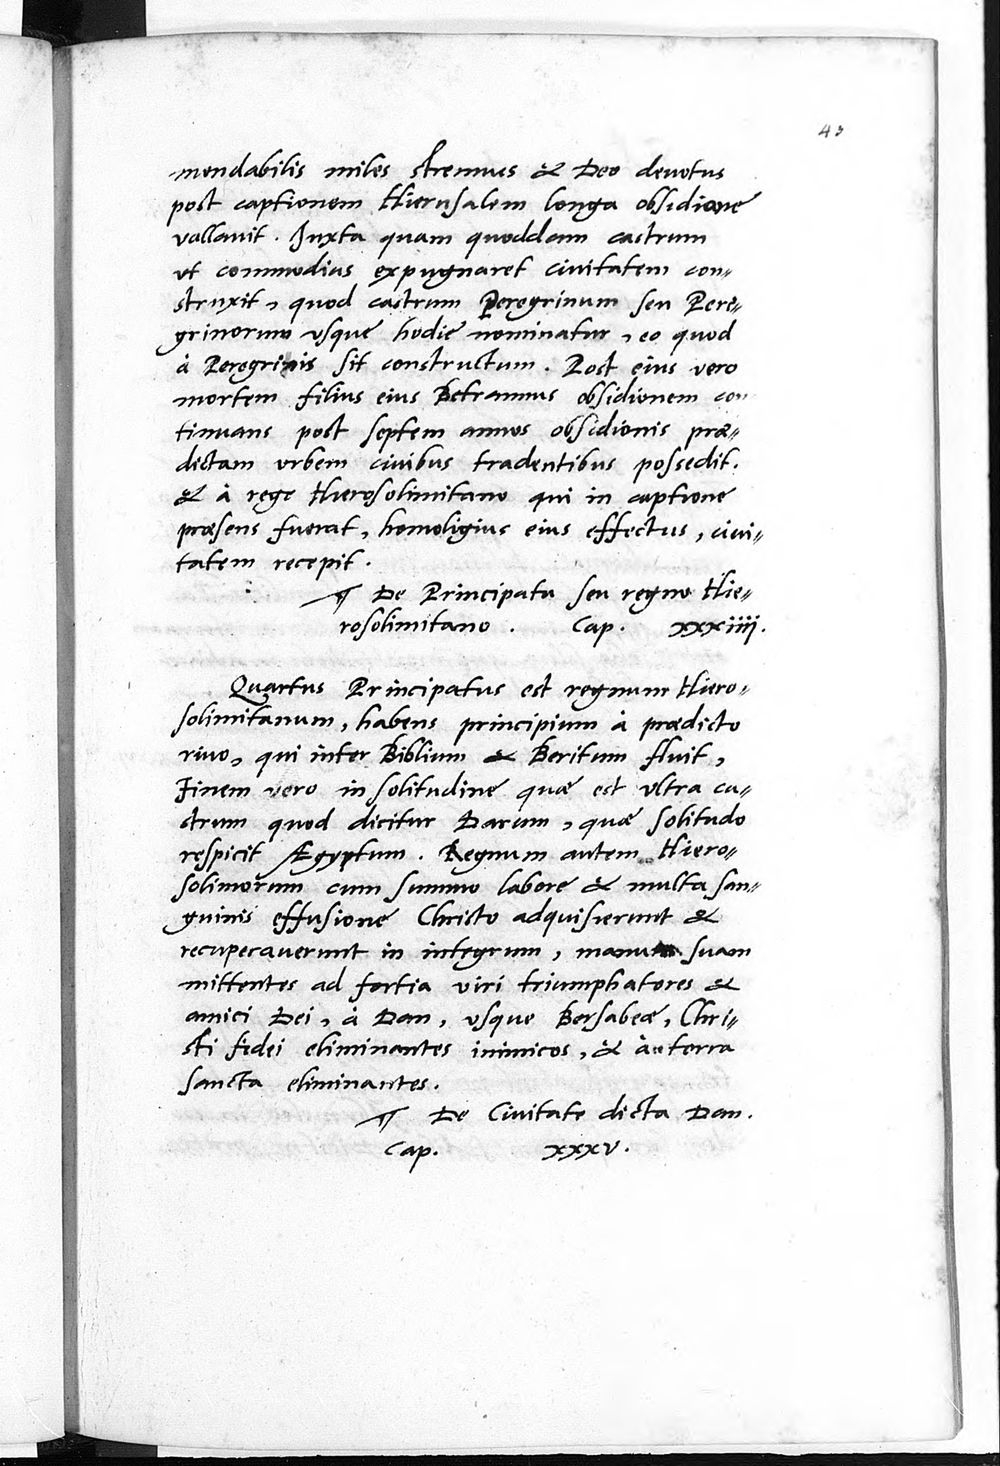 43
mendabilis miles strenuus & Deo deuotus
post captionem Hierusalem longa obsidione
vallauit. Iuxta quam quoddam castrum
vt commodius expugnaret ciuitatem con„
struxit, quod castrum Peregrinum seu Pere„
grinorum vsque hodie nominatur, eo quod
à Peregrinis sit constructum. Post eius vero
mortem filius eius Betrannus obsidionem con
tinuans post septem annos obsidionis præ„
dictam vrbem ciuibus tradentibus possedit.
& à rege Hierosolimitano qui in captione
præsens fuerat, homoligius eius effectus, ciui„
tatem recepit.
¶ De Principatu seu regno Hie„
rosolimitano. Cap. xxxiiij.
Quartus Principatus est regnum Hiero„
solimitanum, habens principium à prædicto
riuo, qui inter Biblium & Beritum fluit,
Finem vero in solitudine quæ est vltra ca„
strum quod dicitur Darum, quæ solitudo
respicit Ægyptum. Regnum autem Hiero„
solimorum cum summo labore & multa san„
guinis effusione Christo adquisierunt &
recuperauerunt in integrum, manum suam
mittentes ad fortia viri triumphatores &
amici Dei, à Dan, vsque Bersabeæ, Chri„
sti fidei eliminantes inimicos, & à terra
sancta eliminantes.
¶ De Ciuitate dicta Dan.
Cap. xxxv.